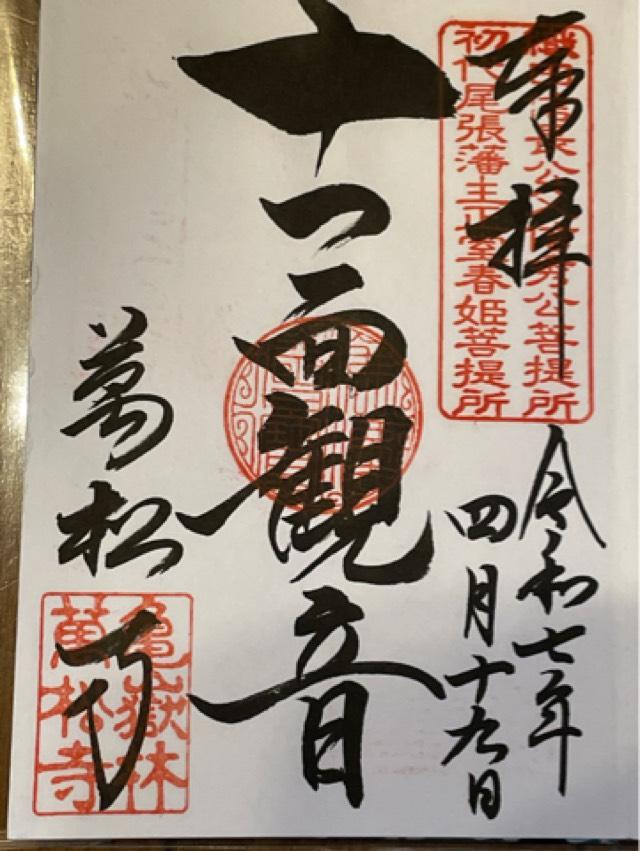 奉拝
織田信長公父信秀公菩提所
初代尾張藩主正室春姫菩提所
令和七年
四月十九日
十一面観音
萬松寺
亀嶽林
萬松寺